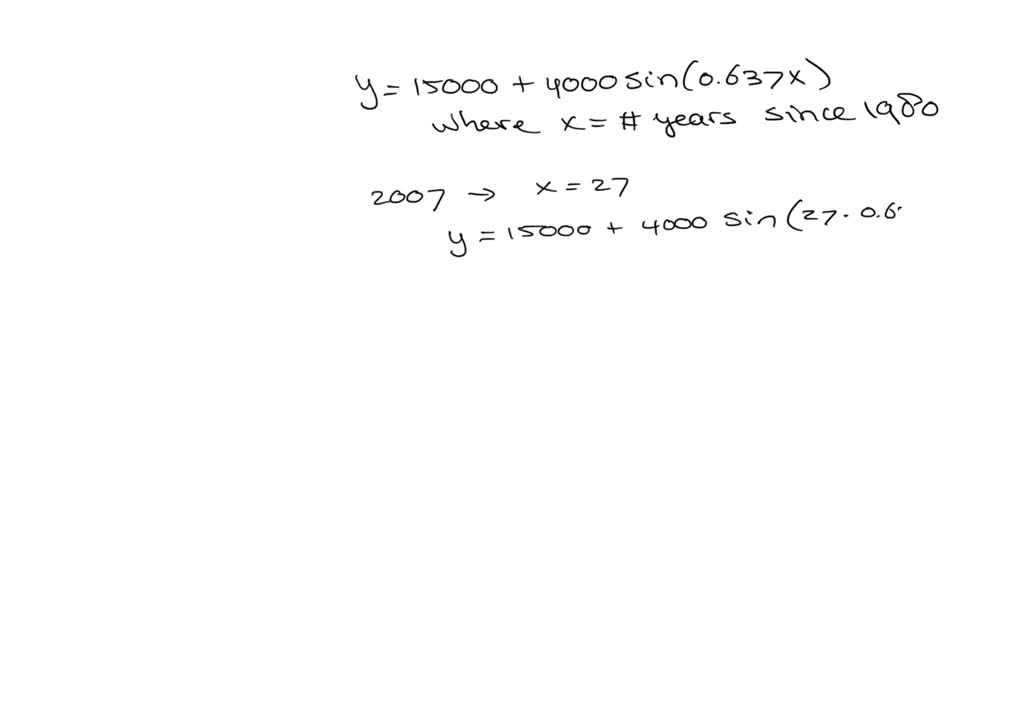 y = 15000 + 4000 sin(0.637x)
where x = # years since 1980
2007 → x = 27
y = 15000 + 4000 sin (27 · 0.6